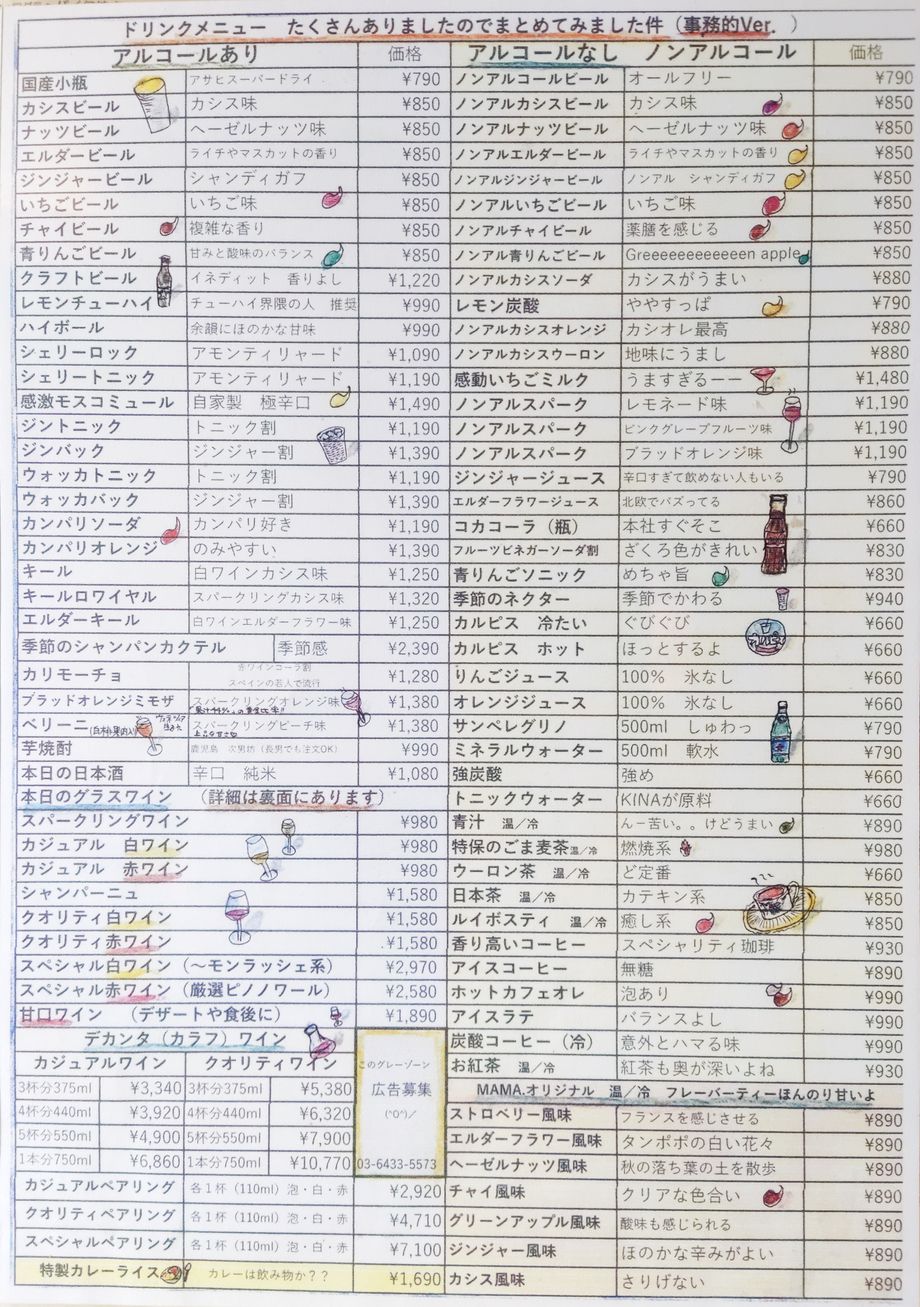 ドリンクメニュー　たくさんありましたのでまとめてみました件（事務的Ver. ）
アルコールあり 価格
国産小瓶 アサヒスーパードライ ¥790
カシスビール カシス味 ¥850
ナッツビール ヘーゼルナッツ味 ¥850
エルダービール ライチやマスカットの香り ¥850
ジンジャービール シャンディガフ ¥850
いちごビール いちご味 ¥850
チャイビール 複雑な香り ¥850
青りんごビール 甘みと酸味のバランス ¥850
クラフトビール イネディット　香りよし ¥1,220
レモンチューハイ チューハイ界隈の人　推奨 ¥990
ハイボール 余韻にほのかな甘味 ¥990
シェリーロック アモンティリャード ¥1,090
シェリートニック アモンティリャード ¥1,190
感激モスコミュール 自家製　極辛口 ¥1,490
ジントニック トニック割 ¥1,190
ジンバック ジンジャー割 ¥1,390
ウォッカトニック トニック割 ¥1,190
ウォッカバック ジンジャー割 ¥1,390
カンパリソーダ カンパリ好き ¥1,190
カンパリオレンジ のみやすい ¥1,390
キール 白ワインカシス味 ¥1,250
キールロワイヤル スパークリングカシス味 ¥1,320
エルダーキール 白ワインエルダーフラワー味 ¥1,250
季節のシャンパンカクテル 季節感 ¥2,390
カリモーチョ 赤ワインコーラ割 スペインの若人で流行 ¥1,280
ブラッドオレンジミモザ スパークリングオレンジ味 ¥1,380
ベリーニ スパークリングピーチ味 ¥1,380
芋焼酎 鹿児島　次男坊（長男でも注文OK） ¥990
本日の日本酒 辛口　純米 ¥1,080
本日のグラスワイン　（詳細は裏面にあります）
スパークリングワイン ¥980
カジュアル　白ワイン ¥980
カジュアル　赤ワイン ¥980
シャンパーニュ ¥1,580
クオリティ白ワイン ¥1,580
クオリティ赤ワイン ¥1,580
スペシャル白ワイン（～モンラッシェ系） ¥2,970
スペシャル赤ワイン（厳選ピノノワール） ¥2,580
甘口ワイン　（デザートや食後に） ¥1,890
デカンタ（カラフ）ワイン
カジュアルワイン クオリティワイン
3杯分375ml ¥3,340 3杯分375ml ¥5,380
4杯分440ml ¥3,920 4杯分440ml ¥6,320
5杯分550ml ¥4,900 5杯分550ml ¥7,900
1本分750ml ¥6,860 1本分750ml ¥10,770
このグレーゾーン
広告募集
(^O^)／
03-6433-5573
カジュアルペアリング 各１杯（110ml）泡・白・赤 ¥2,920
クオリティペアリング 各１杯（110ml）泡・白・赤 ¥4,710
スペシャルペアリング 各１杯（110ml）泡・白・赤 ¥7,100
特製カレーライス カレーは飲み物か？？ ¥1,690
アルコールなし　ノンアルコール 価格
ノンアルコールビール オールフリー ¥790
ノンアルカシスビール カシス味 ¥850
ノンアルナッツビール ヘーゼルナッツ味 ¥850
ノンアルエルダービール ライチやマスカットの香り ¥850
ノンアルジンジャービール ノンアル　シャンディガフ ¥850
ノンアルいちごビール いちご味 ¥850
ノンアルチャイビール 薬膳を感じる ¥850
ノンアル青りんごビール Greeeeeeeeeeeen apple ¥850
ノンアルカシスソーダ カシスがうまい ¥880
レモン炭酸 ややすっぱ ¥790
ノンアルカシスオレンジ カシオレ最高 ¥880
ノンアルカシスウーロン 地味にうまし ¥880
感動いちごミルク うますぎるーー ¥1,480
ノンアルスパーク レモネード味 ¥1,190
ノンアルスパーク ピンクグレープフルーツ味 ¥1,190
ノンアルスパーク ブラッドオレンジ味 ¥1,190
ジンジャージュース 辛口すぎて飲めない人もいる ¥790
エルダーフラワージュース 北欧でバズってる ¥860
コカコーラ（瓶） 本社すぐそこ ¥660
フルーツビネガーソーダ割 ざくろ色がきれい ¥830
青りんごソニック めちゃ旨 ¥830
季節のネクター 季節でかわる ¥940
カルピス　冷たい ぐびぐび ¥660
カルピス　ホット ほっとするよ ¥660
りんごジュース 100%　氷なし ¥660
オレンジジュース 100%　氷なし ¥660
サンペレグリノ 500ml　しゅわっ ¥790
ミネラルウォーター 500ml　軟水 ¥790
強炭酸 強め ¥660
トニックウォーター KINAが原料 ¥660
青汁　温／冷 んー苦い。。けどうまい ¥890
特保のごま麦茶温／冷 燃焼系 ¥980
ウーロン茶　温／冷 ど定番 ¥660
日本茶　温／冷 カテキン系 ¥850
ルイボスティ　温／冷 癒し系 ¥850
香り高いコーヒー スペシャリティ珈琲 ¥930
アイスコーヒー 無糖 ¥890
ホットカフェオレ 泡あり ¥990
アイスラテ バランスよし ¥990
炭酸コーヒー（冷） 意外とハマる味 ¥990
お紅茶 紅茶も奥が深いよね ¥930
MAMA.オリジナル　温／冷　フレーバーティーほんのり甘いよ
ストロベリー風味 フランスを感じさせる ¥890
エルダーフラワー風味 タンポポの白い花々 ¥890
ヘーゼルナッツ風味 秋の落ち葉の土を散歩 ¥890
チャイ風味 クリアな色合い ¥890
グリーンアップル風味 酸味も感じられる ¥890
ジンジャー風味 ほのかな辛みがよい ¥890
カシス風味 さりげない ¥890